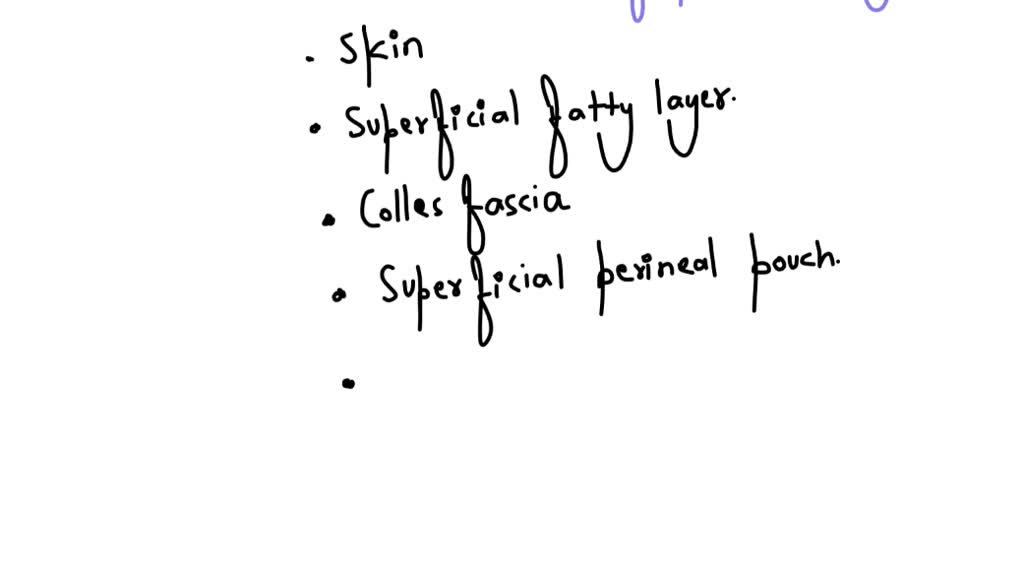 . Skin
. Superficial fatty layer.
. Colles fascia
. Superficial perineal pouch.
.